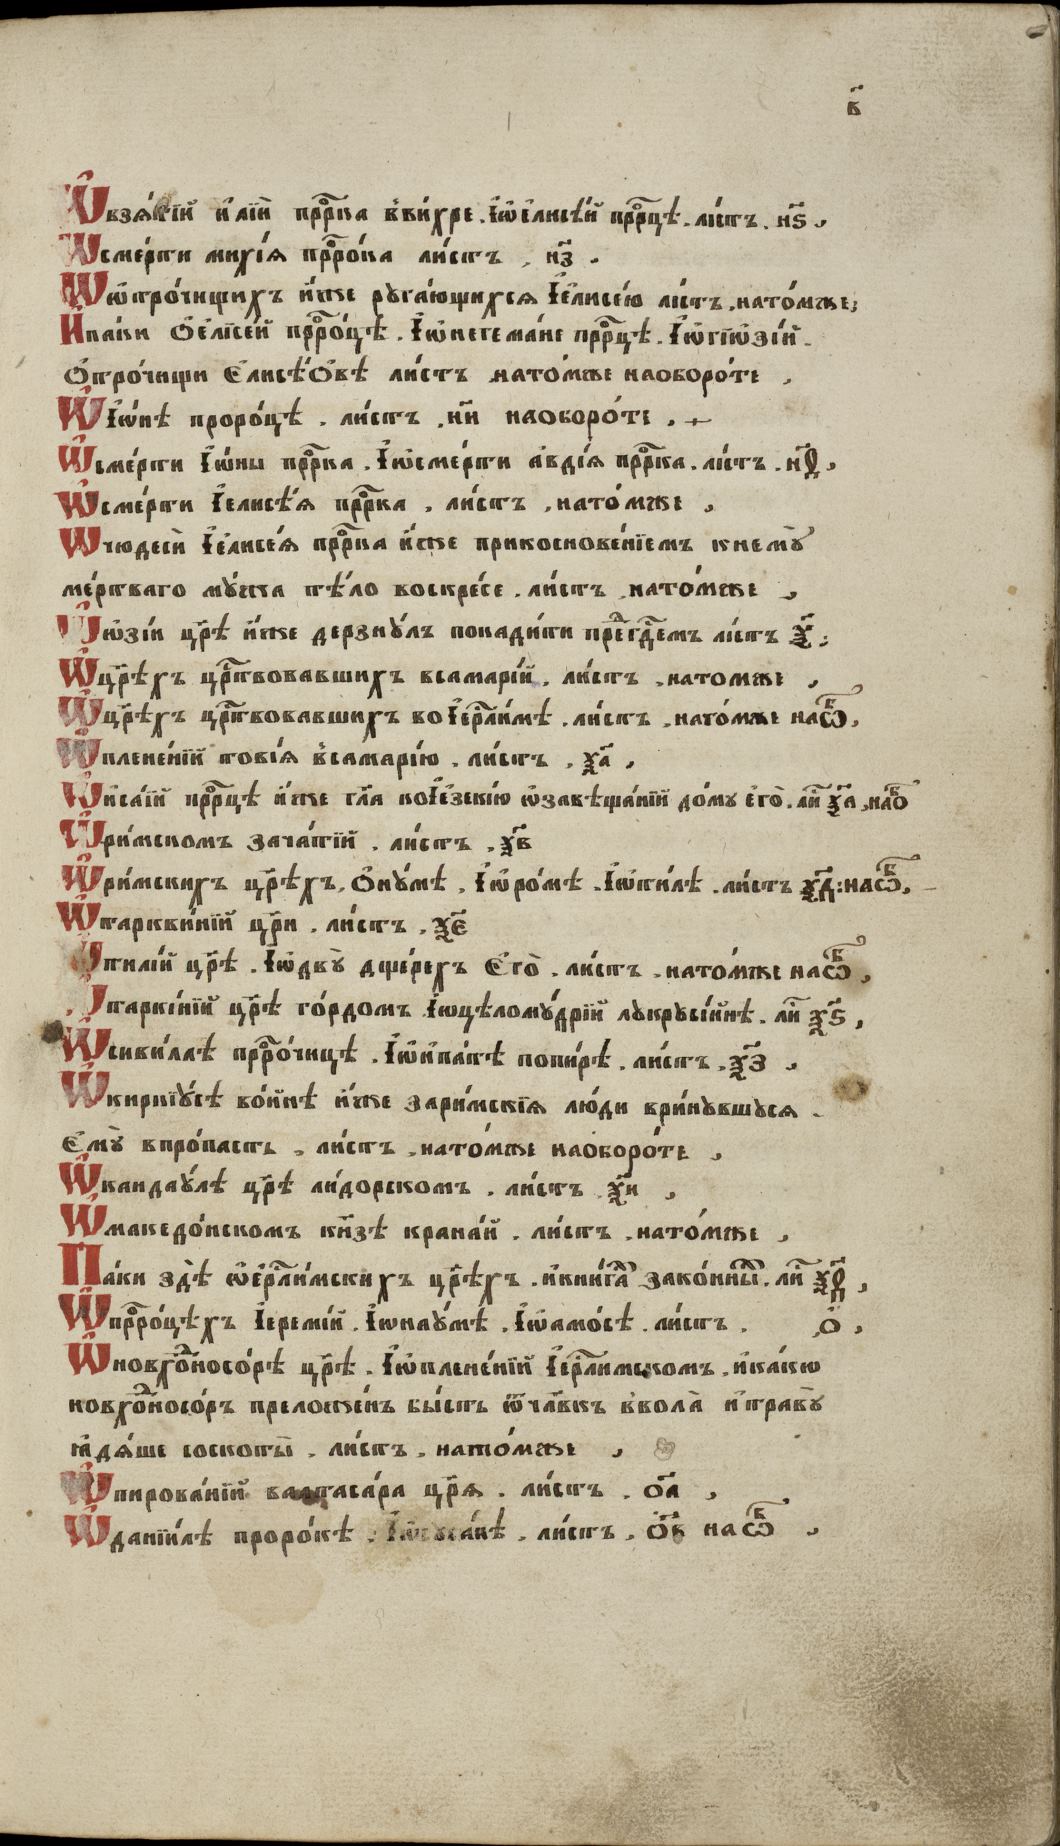 в҃
Ѡ взѧ́тїй и҆лїи̑ прⷪ҇рка в̾ви́хре . И҆ ѡ҆ є҆лисѣ́й прⷪ҇рцѣ . ли́стъ . н҃ѕ ,
Ѡ сме́рти михі́ѧ прⷪ҇ро́ка ли́стъ , н҃з .
Ѡ ѡ҆трочищихъ и҆́же руга́ющихсѧ І҆є҆лисе́ю ли́тъ , на то́мже ;
И҆ па́ки Ѻ є҆лїсе́й прⷪ҇ро́цѣ . І҆ ѡ҆ несема́не прⷪ҇рцѣ . І҆ ѡ҆ гїѡзі́й .
Ѻ҆трочищи Є҆лисѣ́ѻвѣ ли́стъ , на то́мже на обороте ,
Ѡ І҆ѡ́нѣ проро́цѣ . ли́стъ , н҃и на оборо́те . +
Ѡ сме́рти І҆ѡ́ны прⷪ҇рка . І҆ ѡ҆ сме́рти а҆вді́ѧ прⷪ҇рка . ли́тъ . н҃ѳ ,
Ѡ сме́рти І҆елисѣ́ѧ прⷪ҇рка , ли́стъ , на то́мже ,
Ѡ чюдеси̑ І҆є҆лисе́ѧ прⷪ҇рка и҆́же прикоснове́нїемъ к нему̀
ме́ртваго му́жа тѣ́ло воскре́се . ли́стъ , на то́мже ,
Ѡ ѡ҆зі́и цр҃ѣ и҆́же дерзну́лъ покади́ти преⷣ гдⷭ҇емъ ли́стъ ѯ҃ ;
Ѡ цр҃ѣхъ црⷭ҇твовавшихъ в самарі́й , ли́стъ , на томже ,
Ѡ цр҃ѣхъ црⷭ҇твовавшихъ во І҆ерⷭ҇ли́мѣ . ли́стъ , на то́мже на ѡ҆ⷠ ,
Ѡ плене́нїй тові́ѧ в̾ самарі́ю . ли́стъ , ѯ҃а ,
Ѡ и҆са́їй прⷪ҇рцѣ и҆́же гл҃а ко І҆є҆зекі́ю ѡ҆ завѣща́нїй до́му є҆гѡ̀ . лиⷭ҇ ѯ҃а , на ѻⷠ
Ѡ ри́мскомъ зача́тїй . ли́стъ , ѯ҃в
Ѡ ри́мскихъ цр҃ѣхъ , Ѻ҆ ну́мѣ , І҆ ѡ҆ ро́мѣ . І҆ ѡ҆ ти́лѣ . ли́стъ ѯ҃д : на ѡ҆ⷠ ,
Ѡ таркви́нїй цр҃и . ли́стъ , ѯ҃є
Ѡ тилі́й цр҃ѣ . І҆ ѡ҆ дву̀ дще́рехъ Є҆го̀ . ли́стъ , на то́мже на ѡ҆ⷠ ,
Ѡ тарки́нїй цр҃ѣ го́рдомъ І҆ ѡ҆ цѣлому́дрїй лукрусі́йнѣ . лиⷭ҇ ѯ҃ѕ ,
Ѡ сиви́ллѣ прⷪ҇ро́чицѣ . І҆ ѡ҆ и҆па́тѣ попи́рѣ . ли́стъ , ѯ҃з ,
Ѡ киркїу́сѣ во́йнѣ и҆́же за ри́мскїѧ лю́ди ври́нувшусѧ .
Є҆му̀ в про́пасть , ли́стъ , на то́мже на оборо́те ,
Ѡ кандау́лѣ цр҃ѣ ли́дорскомъ . ли́стъ ѯ҃и ,
Ѡ македо́нскомъ кн҃зѣ крана́й . ли́стъ , на то́мже ,
Па́ки здѣ̀ ѡ҆ є҆рⷭ҇ли́мскихъ цр҃ѣхъ . и҆ кни́гаⷯ зако́нныⷯ . лиⷭ҇ ѯ҃ѳ ,
Ѡ прⷪ҇ро́цѣхъ І҆еремі́й . І҆ ѡ҆ нау́мѣ . І҆ ѡ҆ амо́сѣ . ли́стъ . о҃ ,
Ѡ новхⷣоносо́рѣ цр҃ѣ . І҆ ѡ҆ плене́нїй І҆ерⷭ҇ли́мъском . и҆ ка́кѡ
новхⷣоносо́ръ преложе́нъ бы́сть ѿ члⷡ҇къ в̾ вола̀ и҆ траву̀
ꙗ҆дѧ́ше со скоты̀ . ли́стъ , на то́мже ,
Ѡ пирова́нїй валтаса́ра цр҃ѧ . ли́стъ . о҃а ,
Ѡ данїи́лѣ проро́кѣ . І҆ ѡ҆ суса́нѣ . ли́стъ , о҃в на ѡ҆ⷠ ,